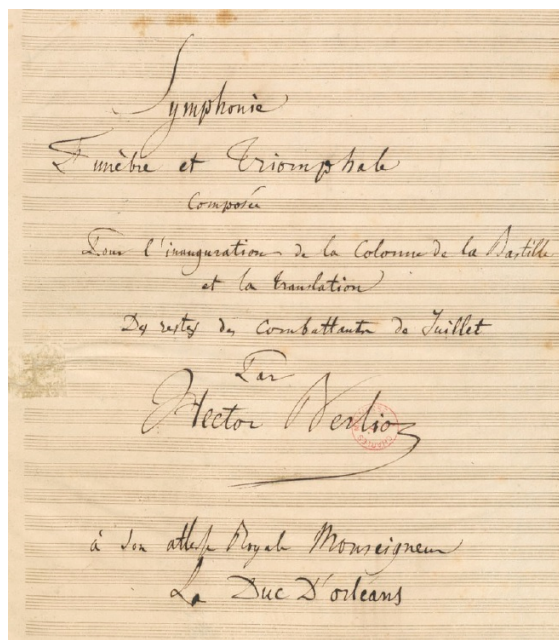 Symphonie
Funèbre et Triomphale
Composée
Pour l'inauguration de la Colonne de la Bastille
et la translation
Des restes des combattants de Juillet
Par
Hector Berlioz
à Son altesse Royale Monseigneur
Le Duc D'orléans